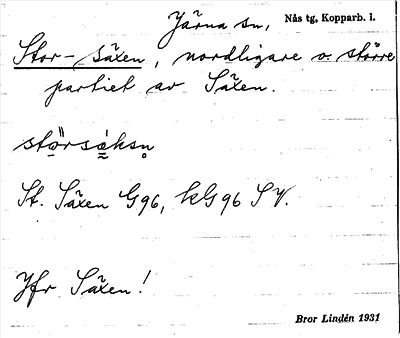 Järna sn, Nås tg, Kopparb. l.
Stor-Säxen, nordligare o. större
partiet av Säxen.
stö̀rsǽksn̥
St. Säxen G96, kG96 SV.
Jfr Säxen!
Bror Lindén 1931